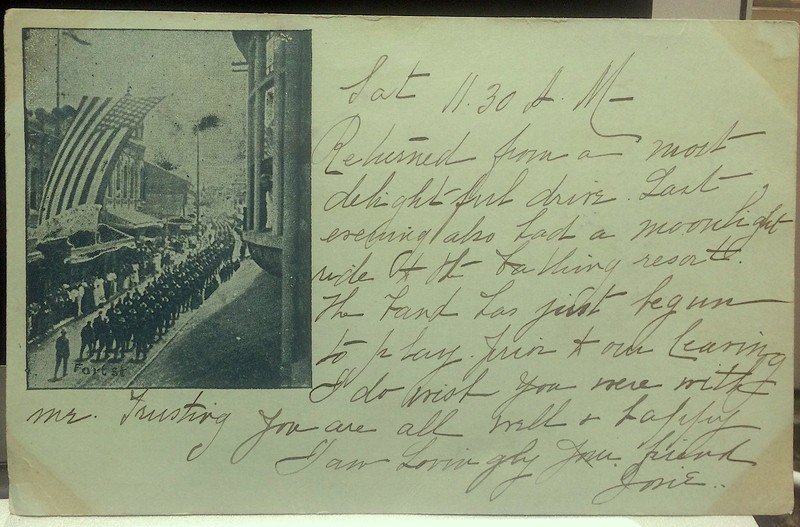 Sat 11.30 A.M-
Returned from a most
delightful drive. Last
evening also had a moonlight
ride to the bathing resorts.
The band has just begun
to play prior to our leaving
I do wish you were with
me. Trusting you are all well & happy
I am Lovingly your friend
Josie..
Fort St